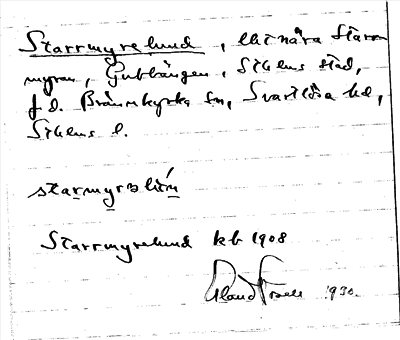 Starrmyrelund, lht nära Starr
myran, Gubbängen, Sthlms stad,
f d. Brännkyrka sn, Svartlösa hd,
Sthlms l.
starmyrslún
Starrmyrelund kb 1908
1930.